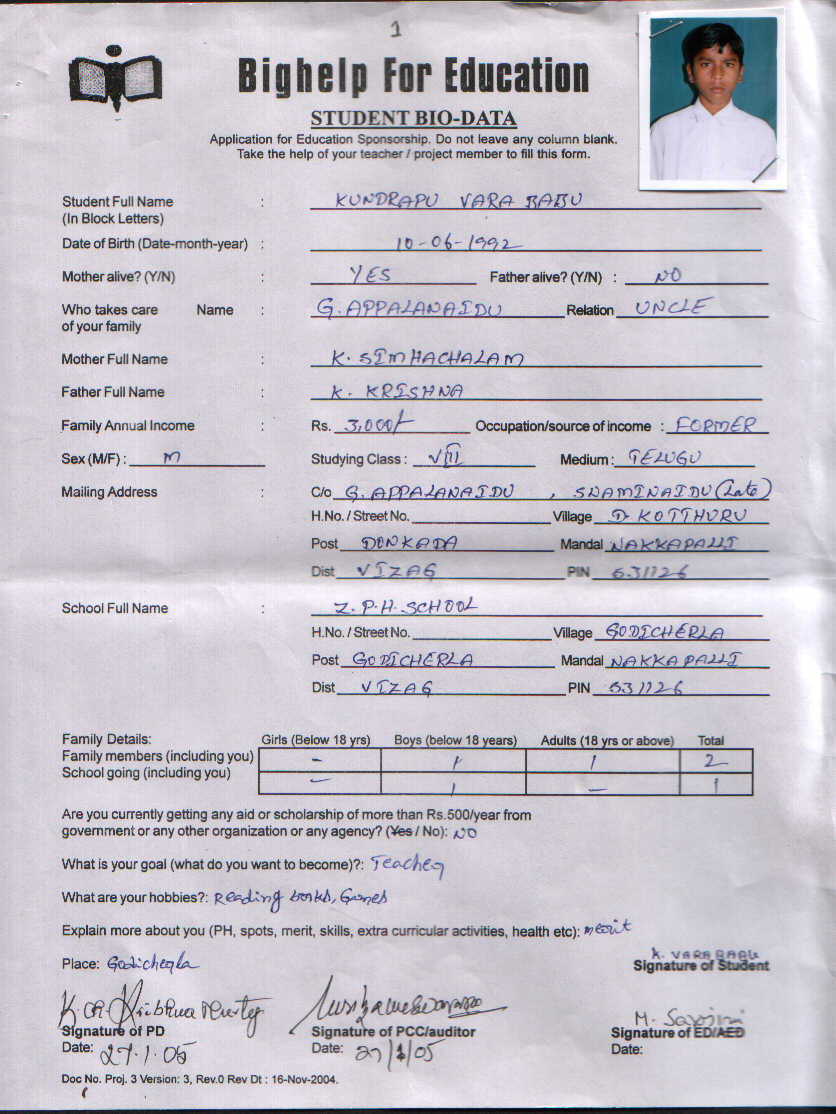 1
Bighelp For Education
STUDENT BIO-DATA
Application for Education Sponsorship. Do not leave any column blank.
Take the help of your teacher / project member to fill this form.
Student Full Name : KUNDRAPU VARA BABU
(In Block Letters)
Date of Birth (Date-month-year) : 10-06-1992
Mother alive? (Y/N) : YES Father alive? (Y/N) : NO
Who takes care Name : G. APPALANAIDU Relation UNCLE
of your family
Mother Full Name : K. SIMHACHALAM
Father Full Name : K. KRISHNA
Family Annual Income : Rs. 3,000/- Occupation/source of income : FORMER
Sex (M/F) : M Studying Class : VIII Medium : TELUGU
Mailing Address : C/o G. APPALANAIDU , SNAMINAIDU (Late)
H.No. / Street No. Village D. KOTTHURU
Post DONKADA Mandal NAKKAPALLI
Dist VIZAG PIN 531126
School Full Name : Z.P.H. SCHOOL
H.No. / Street No. Village GODICHERLA
Post GODICHERLA Mandal NAKKAPALLI
Dist VIZAG PIN 531126
Family Details: Girls (Below 18 yrs) Boys (below 18 years) Adults (18 yrs or above) Total
Family members (including you) - 1 1 2
School going (including you) - 1 - 1
Are you currently getting any aid or scholarship of more than Rs.500/year from
government or any other organization or any agency? (Yes / No): NO
What is your goal (what do you want to become)?: Teacher
What are your hobbies?: Reading books, Games
Explain more about you (PH, spots, merit, skills, extra curricular activities, health etc): merit
Place: Godicherla K. VARA BABU
Signature of Student
M. Sarojini
Signature of PD Signature of PCC/auditor Signature of ED/AED
Date: 27.1.05 Date: 27/1/05 Date:
Doc No. Proj. 3 Version: 3, Rev.0 Rev Dt : 16-Nov-2004.